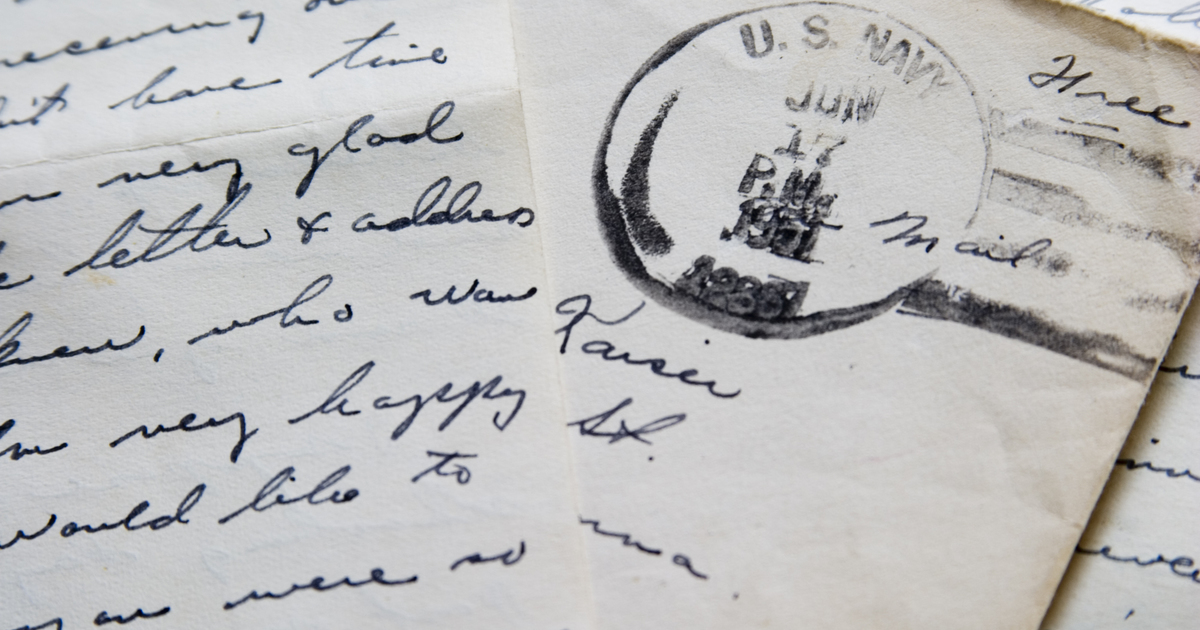 receiving
have time
very glad
letter & address
knew, who was
very happy
would like to
were so
U. S. NAVY
JUN
17
P.M.
1951
Free
Mail
Kaiser
St.